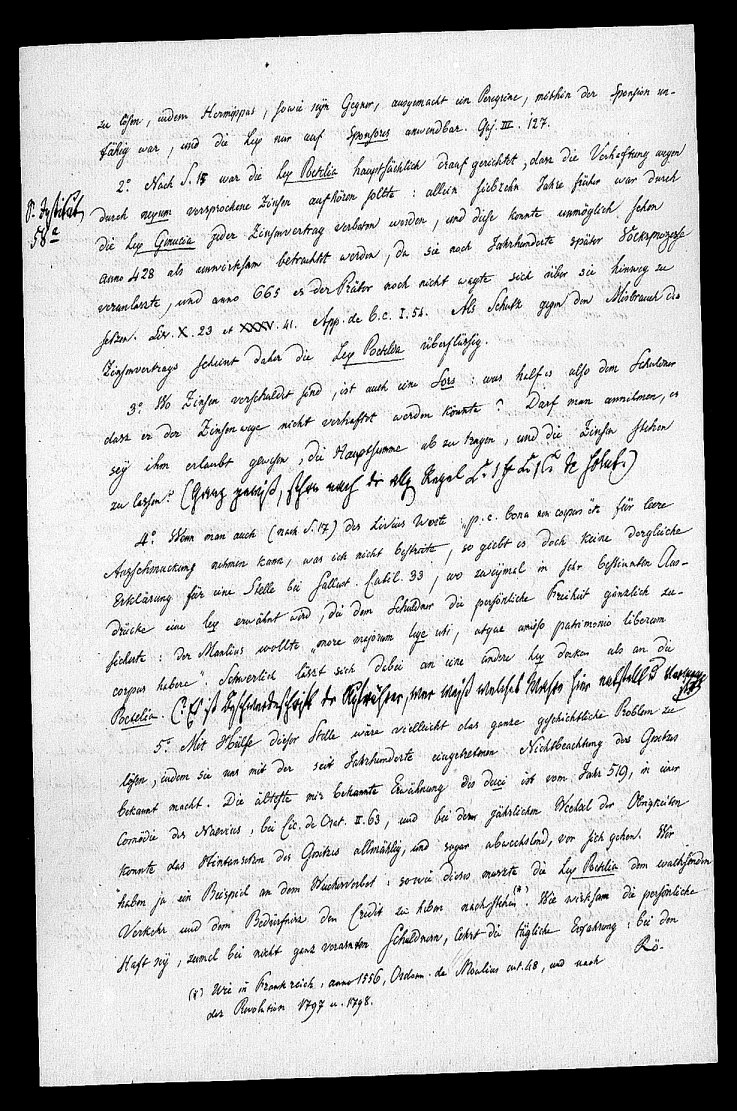 zu lösen, indem Hermippus, sowie sein Gegner, ausgemacht ein Peregrine, mithin der Sponsion un-
fähig war, und die Lex nur auf Sponsores anwendbar. Gaj. III. 127.
2.° Nach S. 18 war die Lex Poetelia hauptsächlich darauf gerichtet, dass die Verhaftung wegen
durch nexum versprochene Zinsen aufhören sollte: allein siebzehn Jahre früher war durch
die Lex Genucia jeder Zinsenvertrag verboten worden, und diese konnte unmöglich schon
anno 428 als unwirksam betrachtet werden, da sie noch Jahrhunderte später Volksprozesse
veranlasste, und anno 665 es der Prätor noch nicht wagte sich über sie hinweg zu
setzen. Liv. X. 23 et XXXV. 41. App. de b. c. I. 54. Als Schutz gegen den Misbrauch des
Zinsenvertrags scheint daher die Lex Poetelia überflüssig.
3.° Wo Zinsen verschuldet sind, ist auch eine Sors: was half es also dem Schuldner
dass er der Zinsen wegen nicht verhaftet werden konnte? Darf man annehmen, es
sey ihm erlaubt gewesen, die Hauptsumme ab zu tragen, und die Zinsen stehen
zu lassen? (Ganz gewiß, schon nach der Regel
4.° Wenn man auch (nach S. 17) des Livius Worte "p. c. bona non corpus" etc für leere
Ausschmückung nehmen kann, was ich nicht bestreite, so giebt es doch keine dergleiche
Erklärung für eine Stelle bei Sallust. Catil. 33, wo zweymal in sehr bestimmten Aus-
drücke eine Lex erwähnt wird, die dem Schuldner die persönliche Freiheit gänzlich zu-
sicherte: der Manlius wollte "more majorum lege uti, atque amisso patrimonio liberum
corpus habere". Schwerlich lässt sich dabei an eine andere Lex denken als an die
Poetelia. (Es ist der Aufrührer, wer weiß welches hier
5.° Mit Hülfe dieser Stelle wäre vielleicht das ganze geschichtliche Problem zu
lösen, indem sie uns mit der seit Jahrhunderte eingetretenen Nichtbeachtung des Gesetzes
bekannt macht. Die älteste mir bekannte Erwähnung des duci ist vom Jahr 519, in einer
Comödie des Naevius, bei Cic. de Orat. II. 63, und bei dem jährlichen Wechsel der Obrigkeiten
konnte das Hintansetzen des Gesetzes allmählig, und sogar abwechselnd, vor sich gehen. Wir
haben ja ein Beispiel an dem Wucherverbot: sowie dieses musste die Lex Poetelia dem wachsenden
Verkehr und dem Bedürfnisse den Credit zu heben nachstehen (*). Wie wirksam die persönliche
Haft sey, zumal bei nicht ganz verarmten Schuldnern, lehrt die tägliche Erfahrung: bei den
Rö-
(*) Wie in Frankreich, anno 1556, Ordonn. de Moulins art. 48, und nach
der Revolution 1797 u. 1798.
58 a